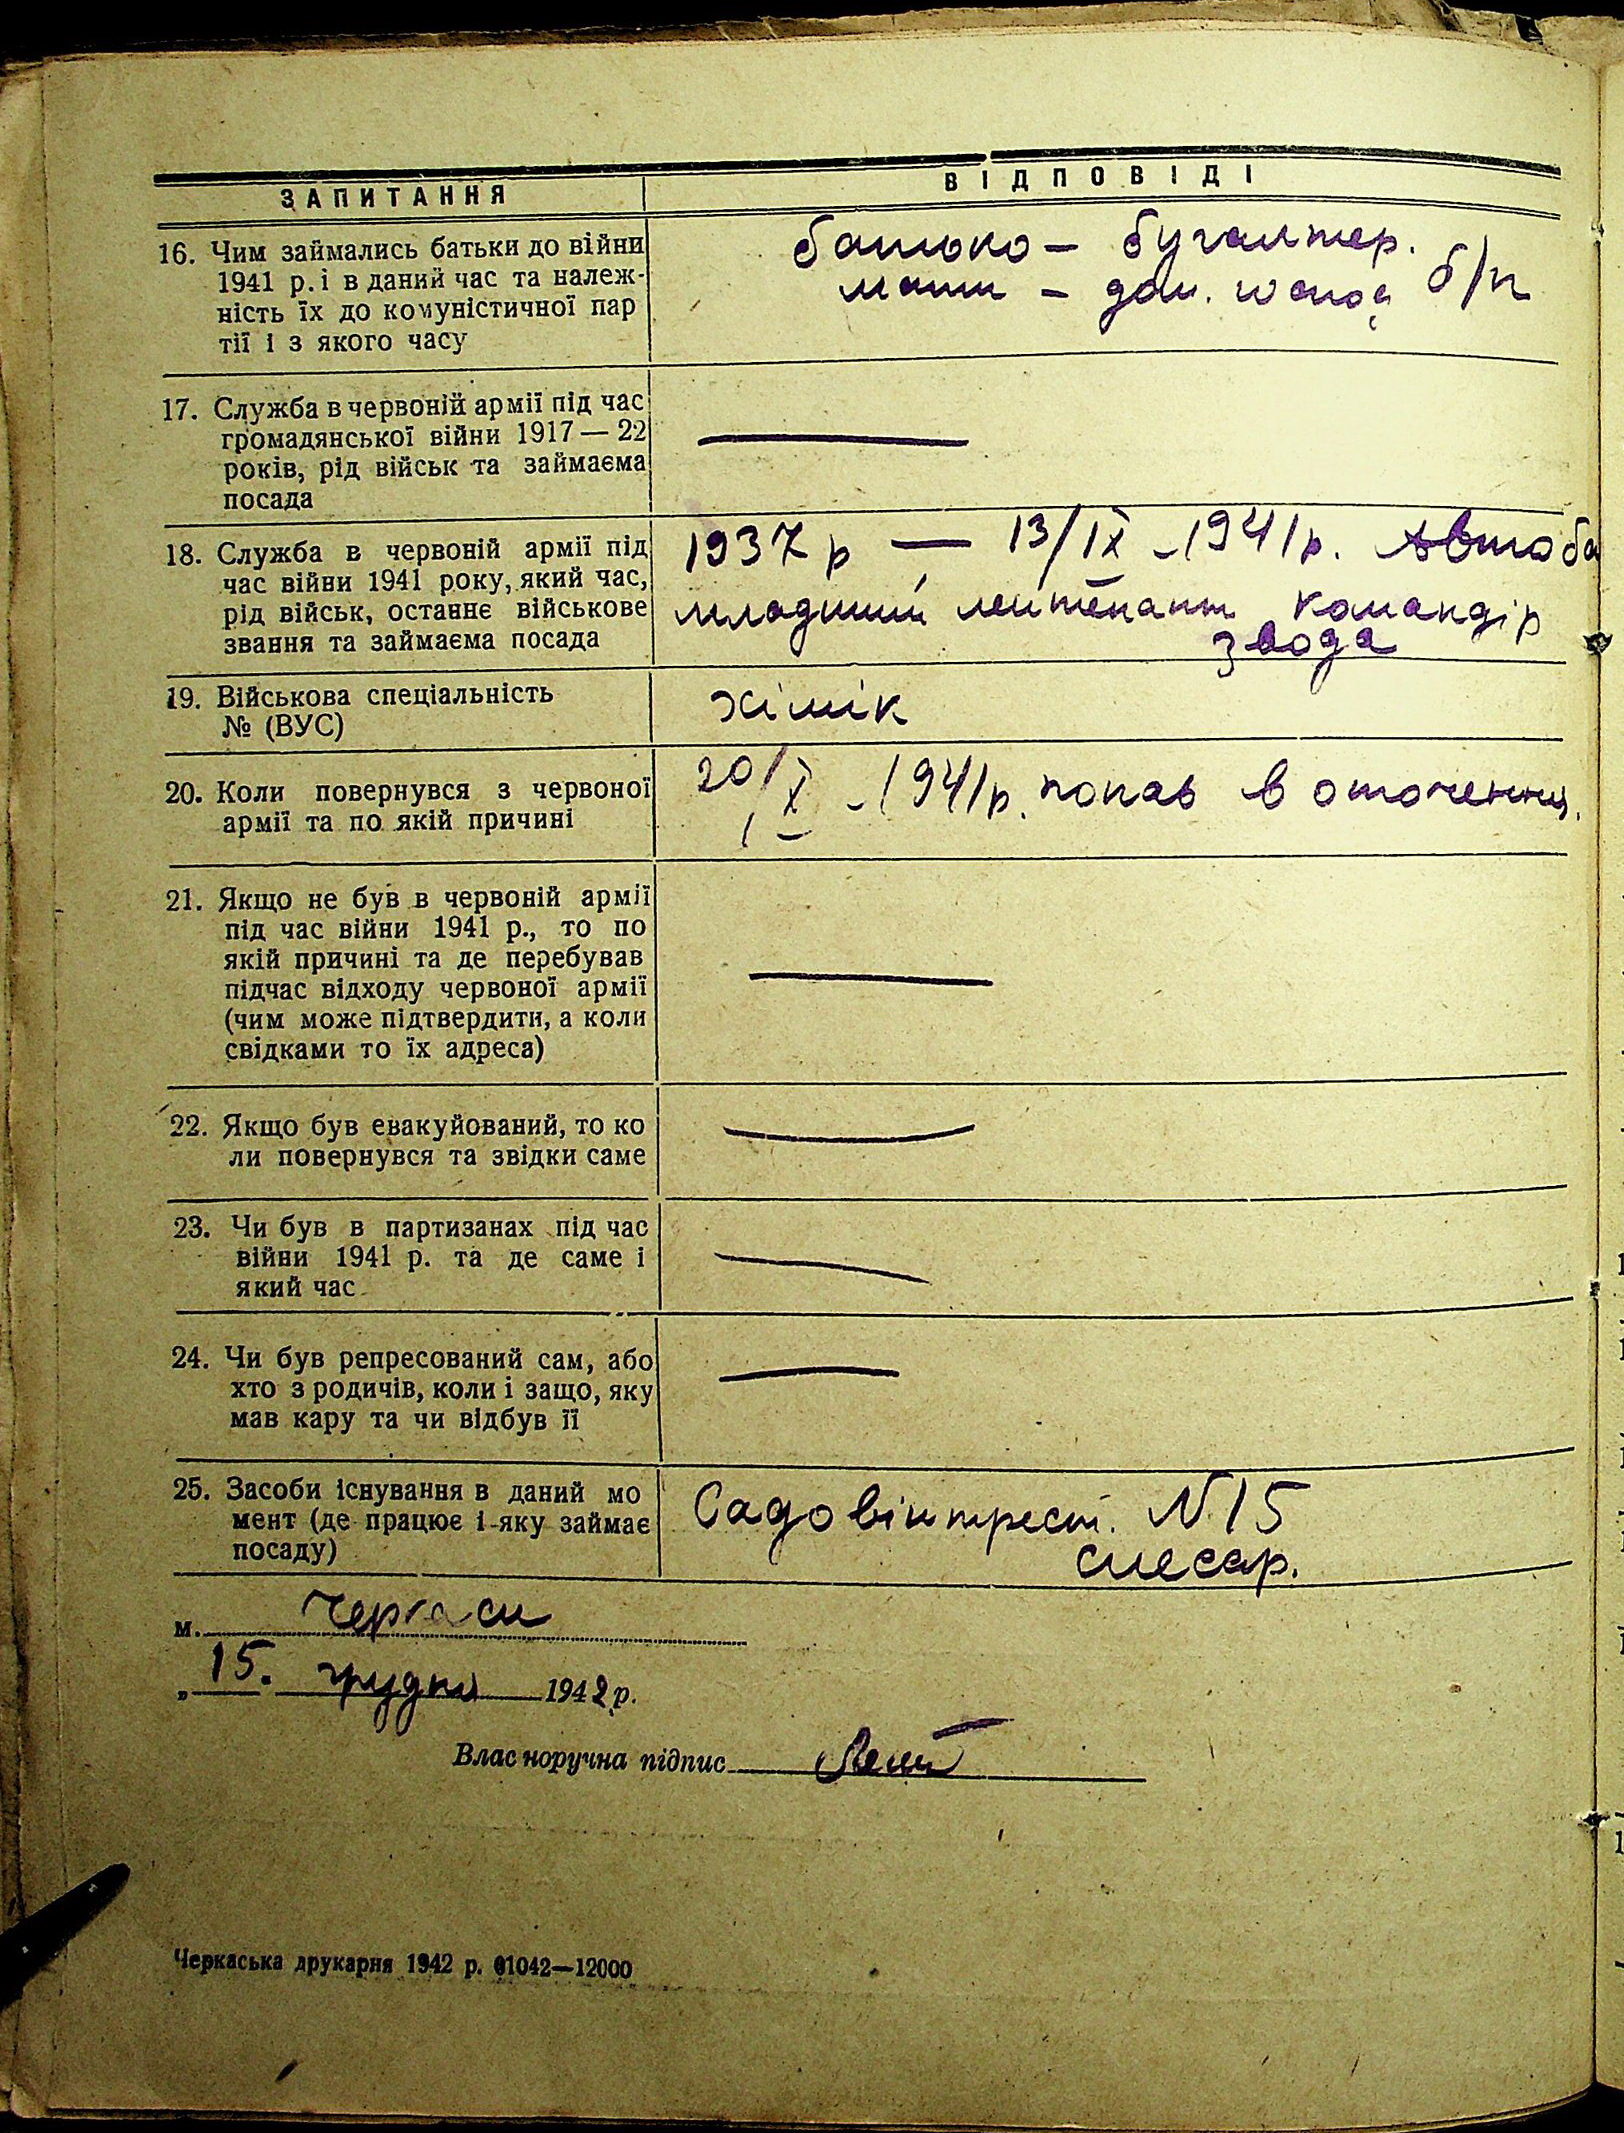 ЗАПИТАННЯ
ВІДПОВІДІ
16. Чим займались батьки до війни
1941 р. і в даний час та належ-
ність їх до комуністичної пар
тії і з якого часу
батько — бугалтер.
мати — дом. б/п
17. Служба в червоній армії під час
громадянської війни 1917 — 22
років, рід військ та займаєма
посада
18. Служба в червоній армії під
час війни 1941 року, який час,
рід військ, останнє військове
звання та займаєма посада
1937 р — 13/IX - 1941 р. Автоба
младший лейтенант командір
звода
19. Військова спеціальність
№ (ВУС)
хімік
20. Коли повернувся з червоної
армії та по якій причині
20/X - 1941 р. попав в оточення.
21. Якщо не був в червоній армії
під час війни 1941 р., то по
якій причині та де перебував
підчас відходу червоної армії
(чим може підтвердити, а коли
свідками то їх адреса)
22. Якщо був евакуйований, то ко
ли повернувся та звідки саме
23. Чи був в партизанах під час
війни 1941 р. та де саме і
який час
24. Чи був репресований сам, або
хто з родичів, коли і защо, яку
мав кару та чи відбув її
25. Засоби існування в даний мо
мент (де працює і яку займає
посаду)
Садовінтрест. N 15
слесар.
м. Черкаси
„ 15. грудня 1942 р.
Власноручна підпис
Черкаська друкарня 1942 р. 01042—12000